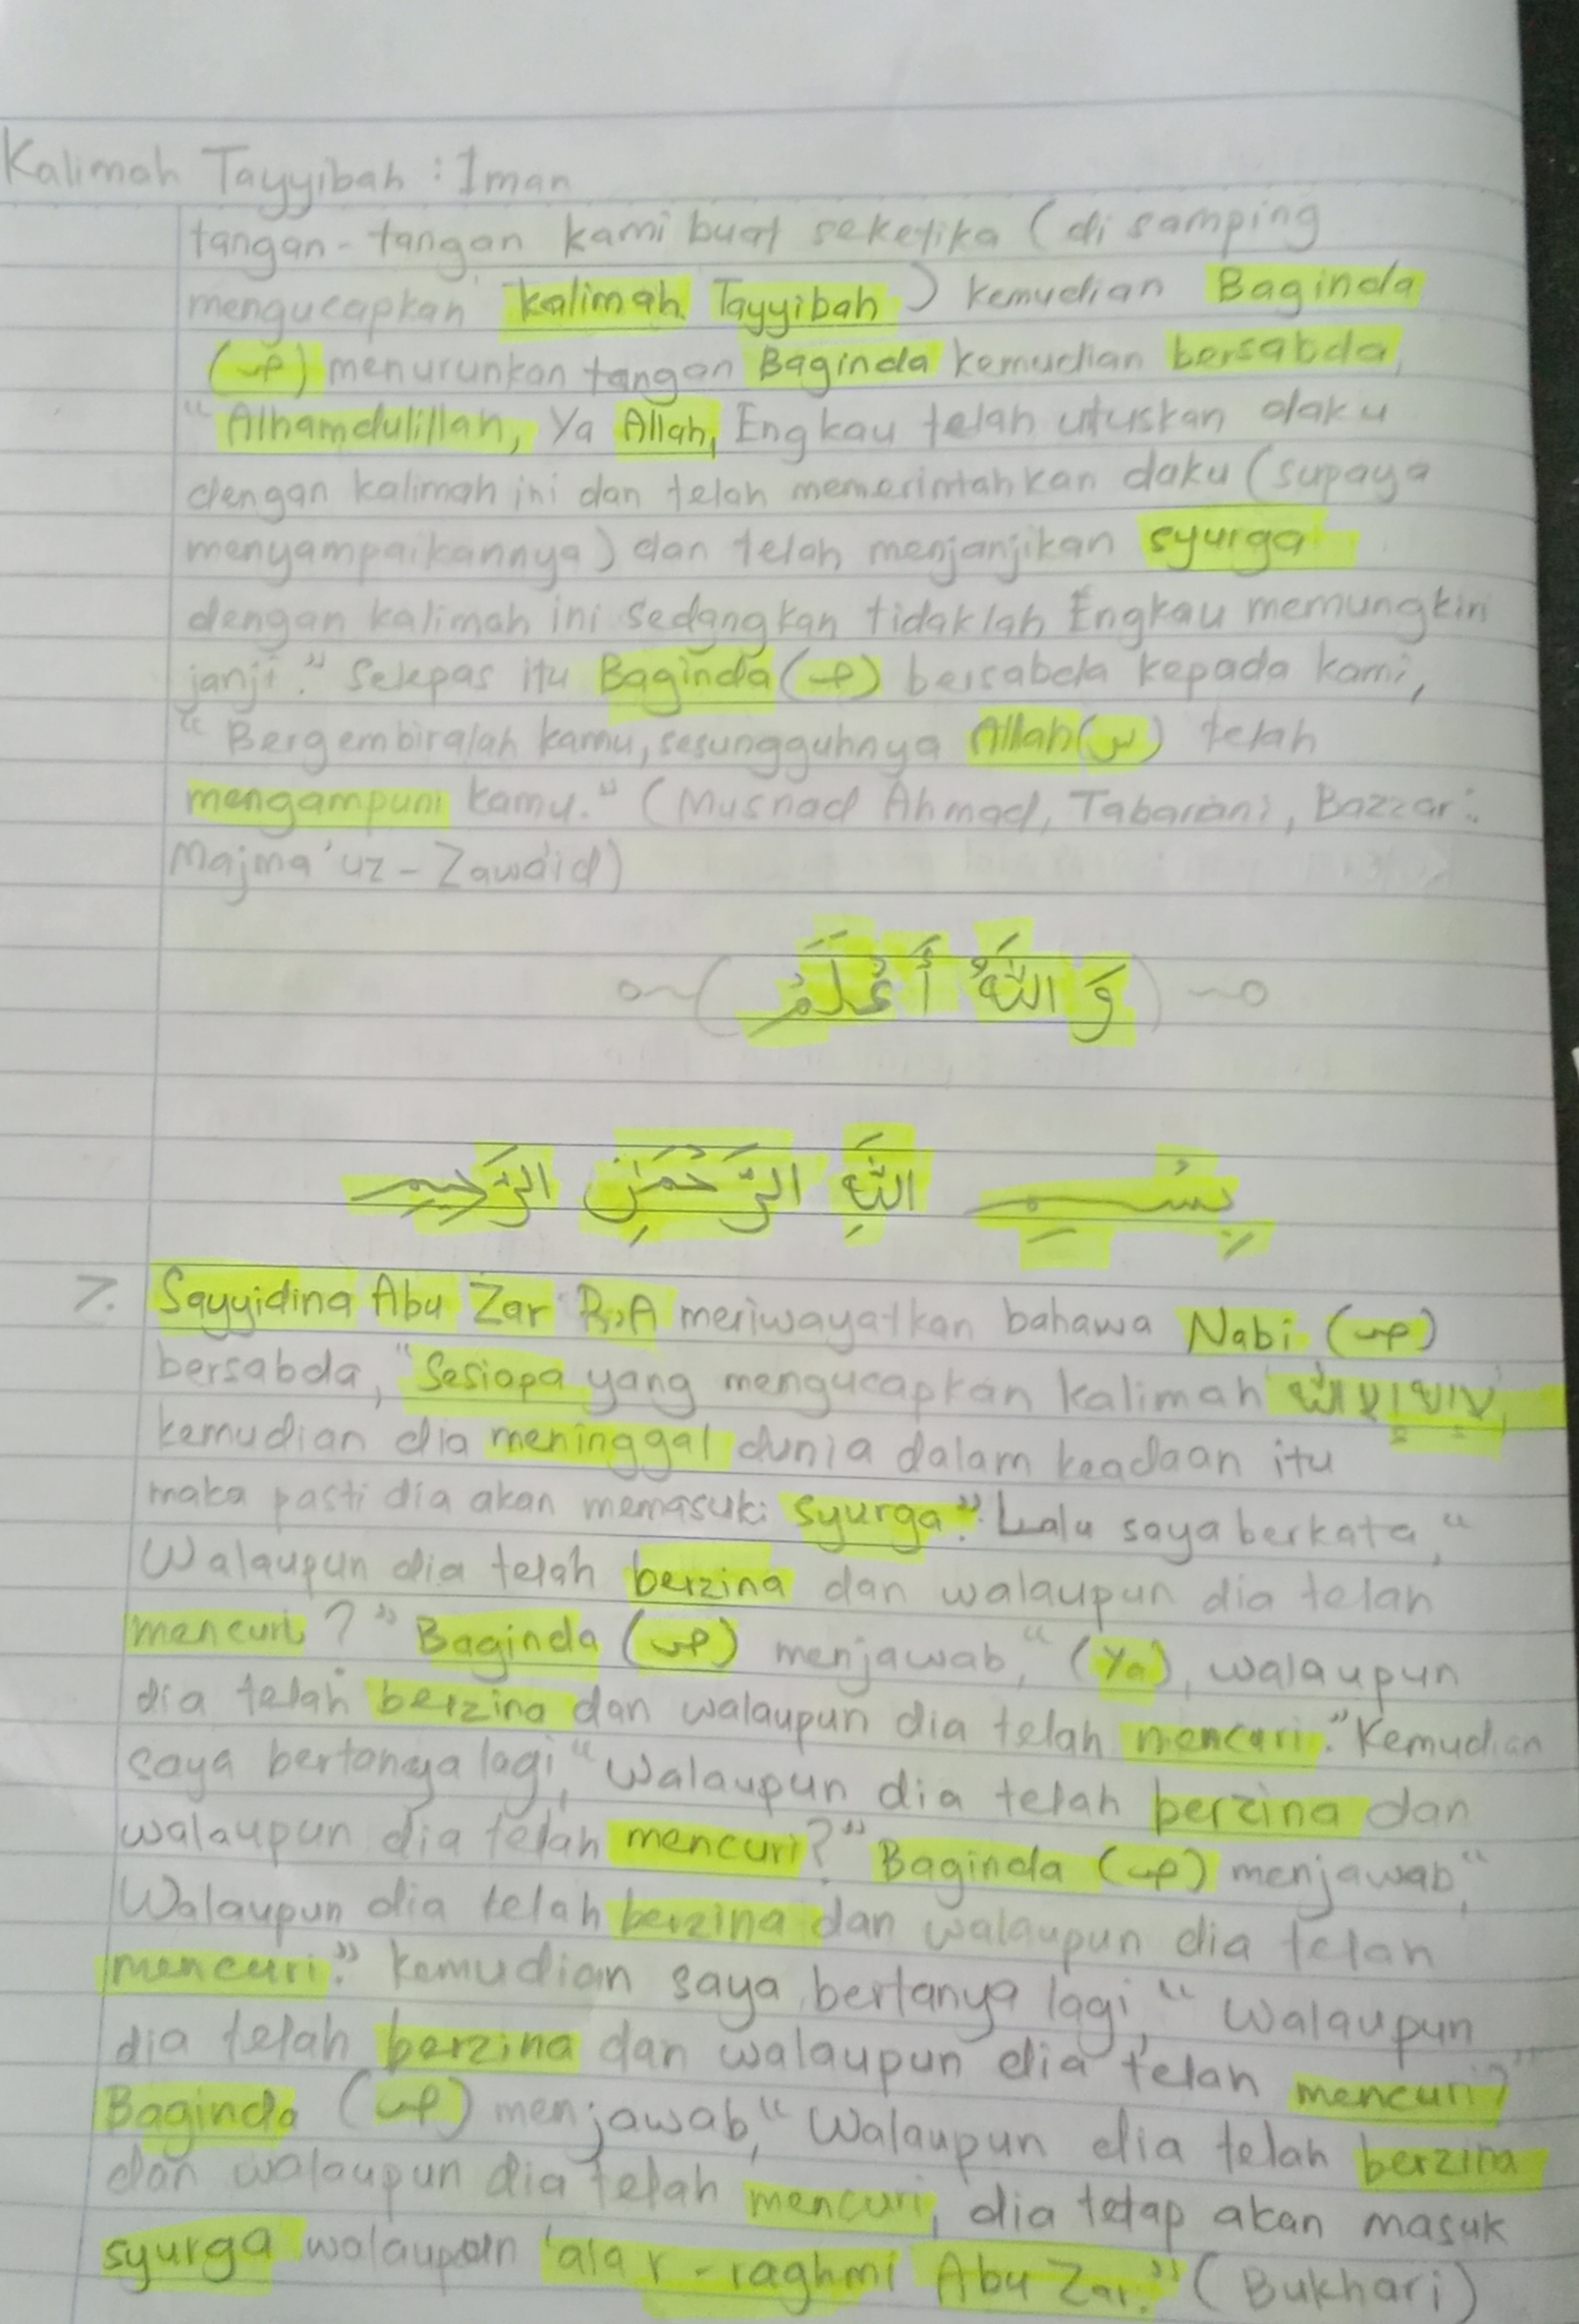 Kalimah Tayyibah : Iman
tangan-tangan kami buat seketika (di samping
mengucapkan kalimah Tayyibah) kemudian Baginda
(ﷺ) menurunkan tangan Baginda kemudian bersabda,
"Alhamdulillah, Ya Allah, Engkau telah utuskan daku
dengan kalimah ini dan telah memerintahkan daku (supaya
menyampaikannya) dan telah menjanjikan syurga
dengan kalimah ini sedangkan tidaklah Engkau memungkiri
janji." Selepas itu Baginda (ﷺ) bersabda kepada kami,
"Bergembiralah kamu, sesungguhnya Allah telah
mengampuni kamu." (Musnad Ahmad, Tabarani, Bazzar:
Majma'uz-Zawaid)
وَ اللَّهُ أَعْلَمُ
بِسْمِ اللَّهِ الرَّحْمَنِ الرَّحِيمِ
7. Sayyidina Abu Zar R.A meriwayatkan bahawa Nabi (ﷺ)
bersabda, "Sesiapa yang mengucapkan kalimah لا إله إلا الله,
kemudian dia meninggal dunia dalam keadaan itu
maka pasti dia akan memasuki syurga." Lalu saya berkata, "
Walaupun dia telah berzina dan walaupun dia telah
mencuri?" Baginda (ﷺ) menjawab, "(Ya), walaupun
dia telah berzina dan walaupun dia telah mencuri." Kemudian
saya bertanya lagi, "Walaupun dia telah berzina dan
walaupun dia telah mencuri?" Baginda (ﷺ) menjawab, "
Walaupun dia telah berzina dan walaupun dia telah
mencuri." Kemudian saya bertanya lagi, "Walaupun
dia telah berzina dan walaupun dia telah mencuri?"
Baginda (ﷺ) menjawab, "Walaupun dia telah berzina
dan walaupun dia telah mencuri, dia tetap akan masuk
syurga walaupun 'ala r-raghmi Abu Zar." (Bukhari)